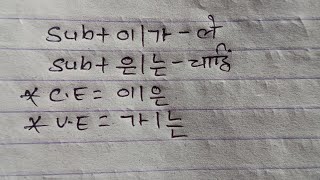 Sub + 이/가 - ले
Sub + 은/는 - चाहिं
* C.E = 이/은
* V.E = 가/는